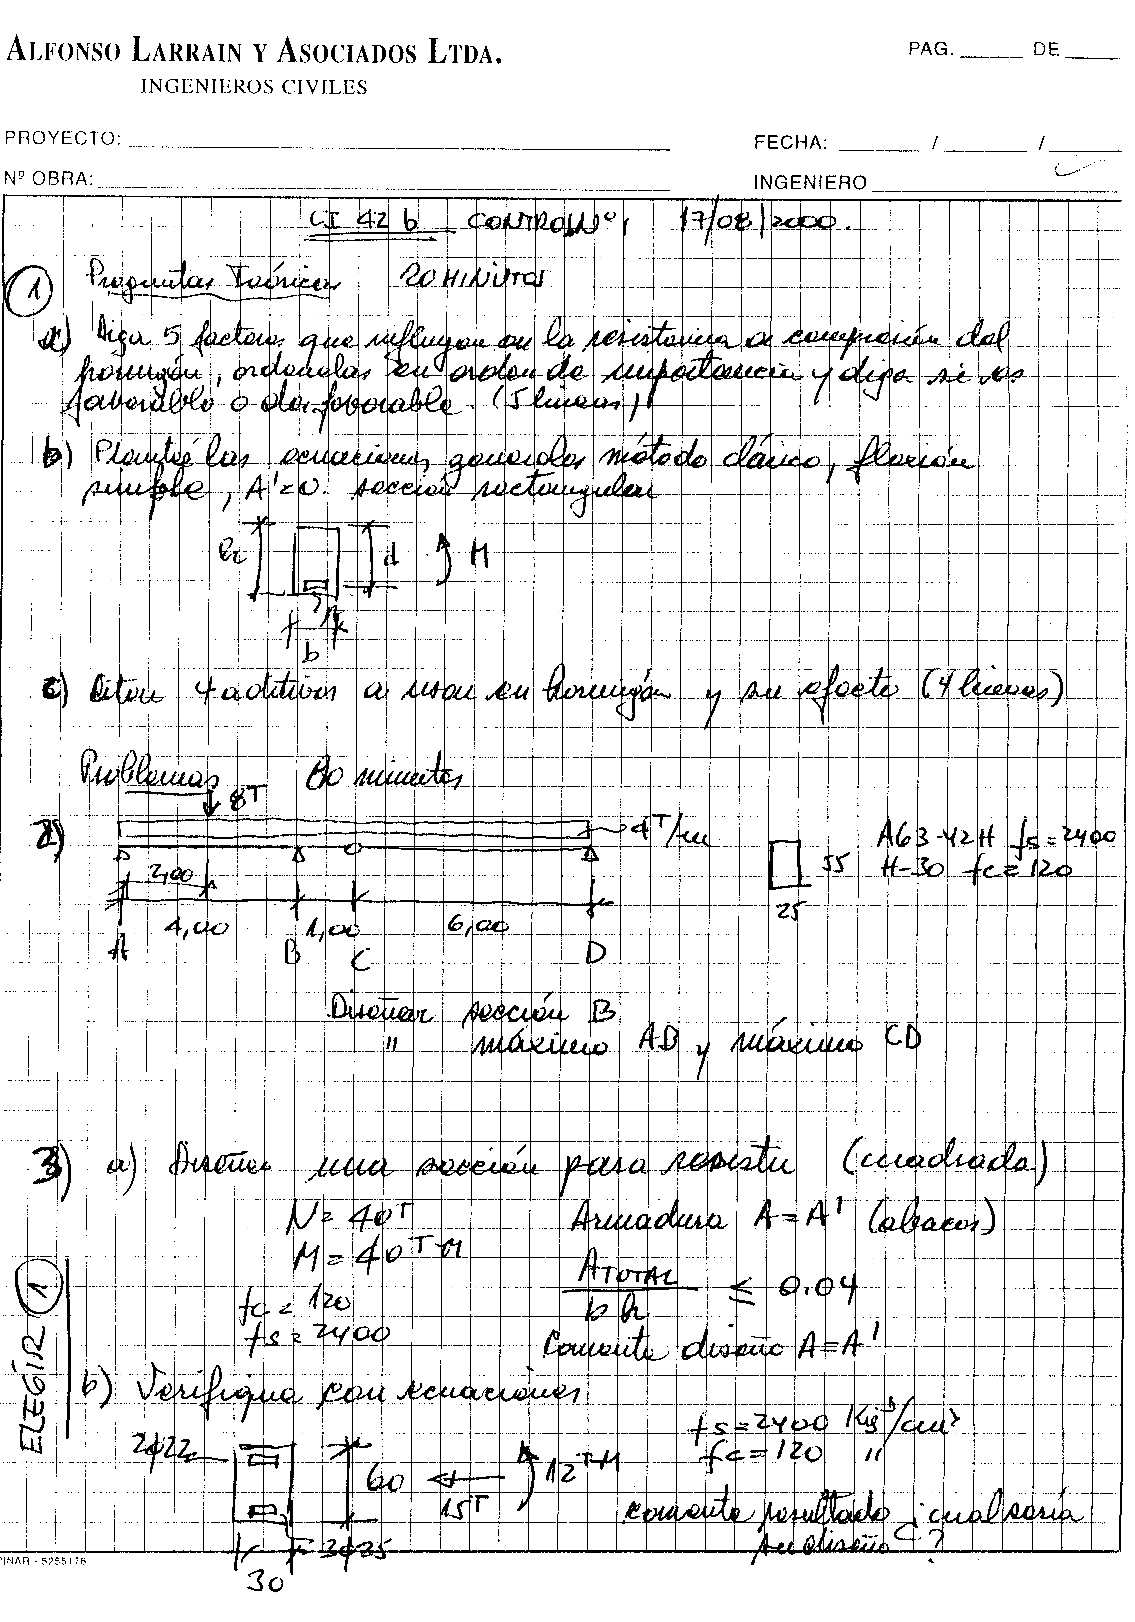 ALFONSO LARRAIN Y ASOCIADOS LTDA.
INGENIEROS CIVILES
PAG. ______ DE ______
PROYECTO: ______
FECHA: ______ / ______ / ______
Nº OBRA: ______
INGENIERO ______
CI 42 b CONTROL Nº 1 17/08/2000.
1 Preguntas Teóricas 20 MINUTOS
a) Diga 5 factores que influyan en la resistencia a compresión del
hormigón, ordenelas en orden de importancia y diga si es
favorable o desfavorable. (5 lineas)
b) Plantée las ecuaciones generales método clásico, flexión
simple, A'=0. sección rectangular
h d M
b
c) Citen 4 aditivos a usar en hormigón y su efecto (4 lineas)
Problemas 80 minutos
8T
2) 4T/m
2,00
4,00 1,00 6,00
A B C D
55
25
A63-42H fs=2400
H-30 fc=120
Diseñar sección B
" máximo AB y máximo CD
3) a) Diseñar una sección para resistir (cuadrada)
N=40T Armadura A=A' (abacos)
M=40T-M
ATOTAL / bh ≤ 0.04
fc=120
fs=2400
Comente diseño A=A'
ELEGIR 1
b) Verifique con ecuaciones
fs=2400 Kg/cm²
fc=120 "
2φ22
60
15T
12T-M
3φ25
30
comente resultado ¿cual sería
su diseño?